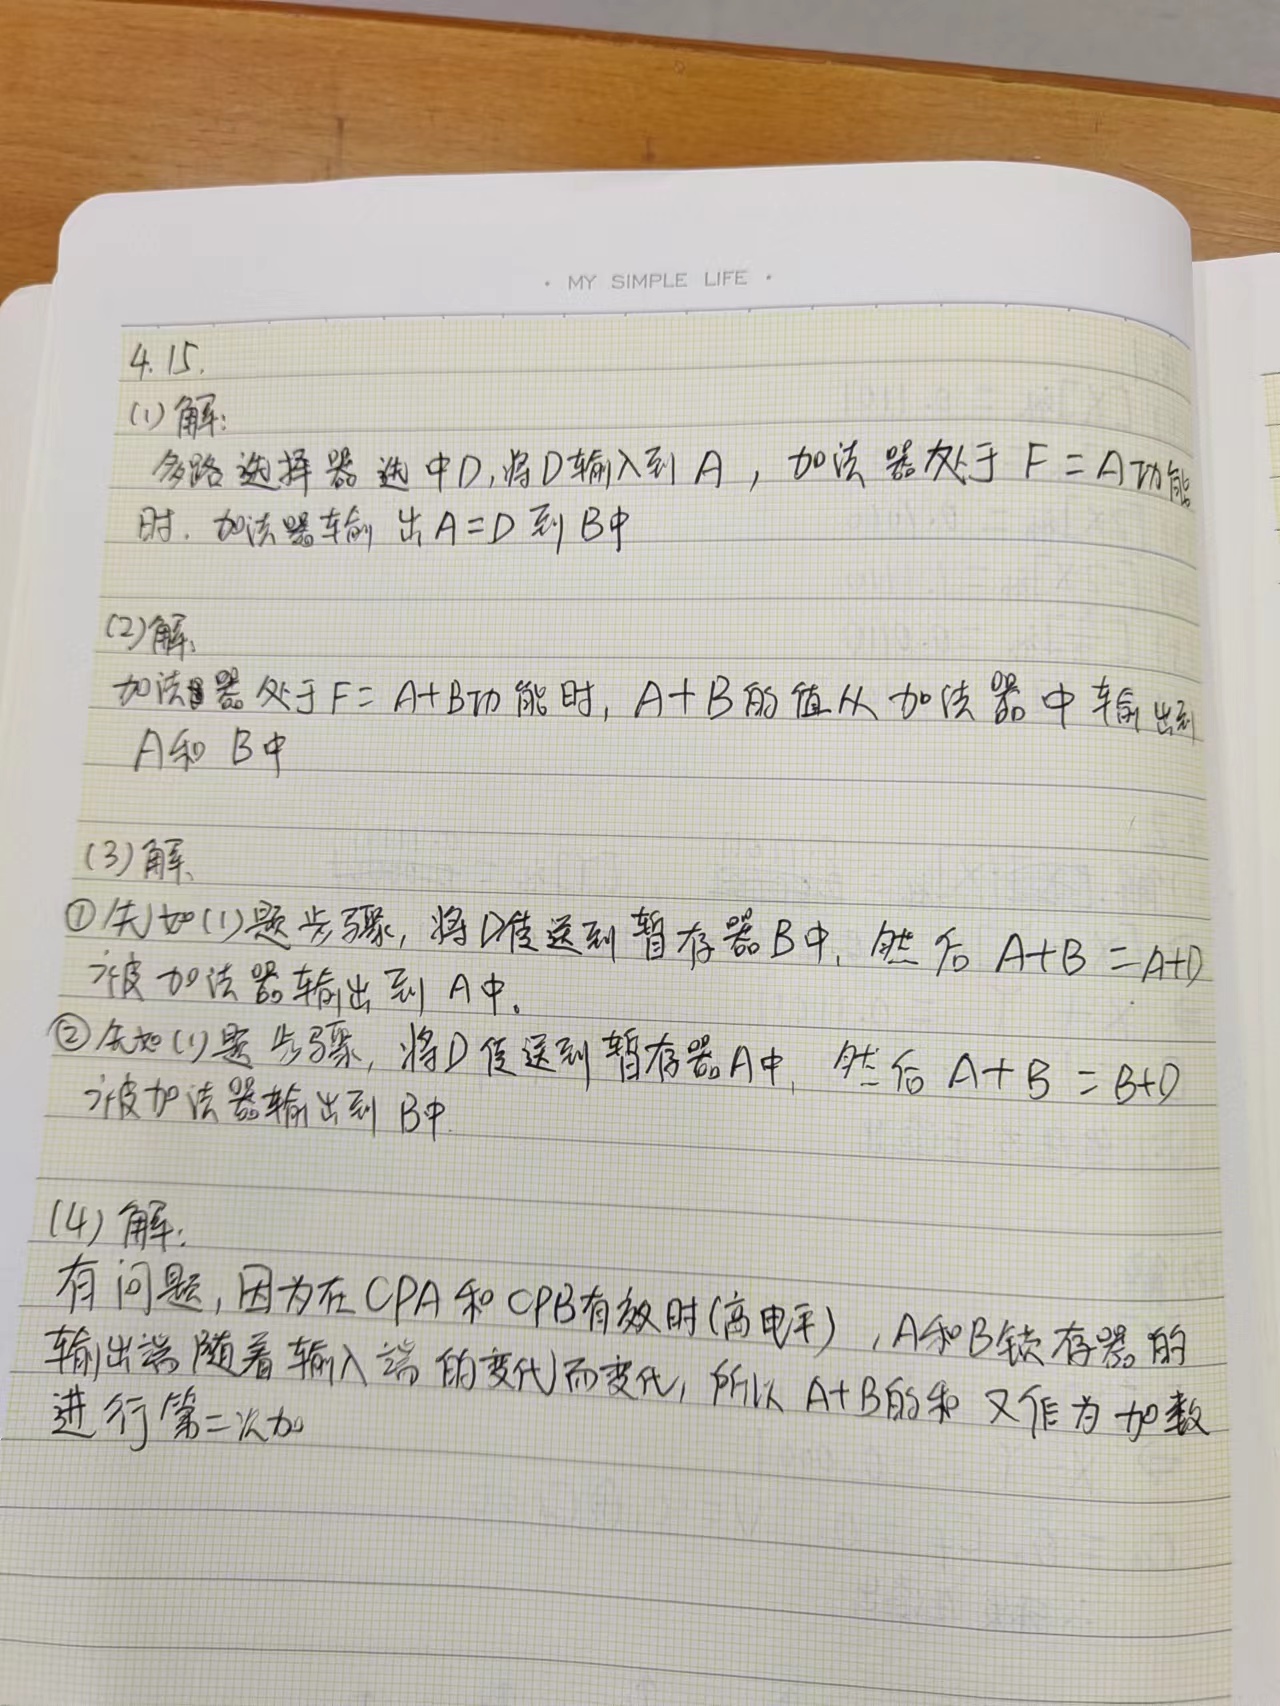 · MY SIMPLE LIFE ·
4.15.
(1)解:
多路选择器选中D,将D输入到A,加法器处于F=A功能
时.加法器输出A=D到B中
(2)解:
加法器处于F=A+B功能时,A+B的值从加法器中输出到
A和B中
(3)解:
①先如(1)题步骤,将D传送到暂存器B中,然后A+B=A+D
被加法器输出到A中。
②先如(1)题步骤,将D传送到暂存器A中,然后A+B=B+D
被加法器输出到B中.
(4)解:
有问题,因为在CPA和CPB有效时(高电平),A和B锁存器的
输出端随着输入端的变化而变化,所以A+B的和又作为加数
进行第二次加